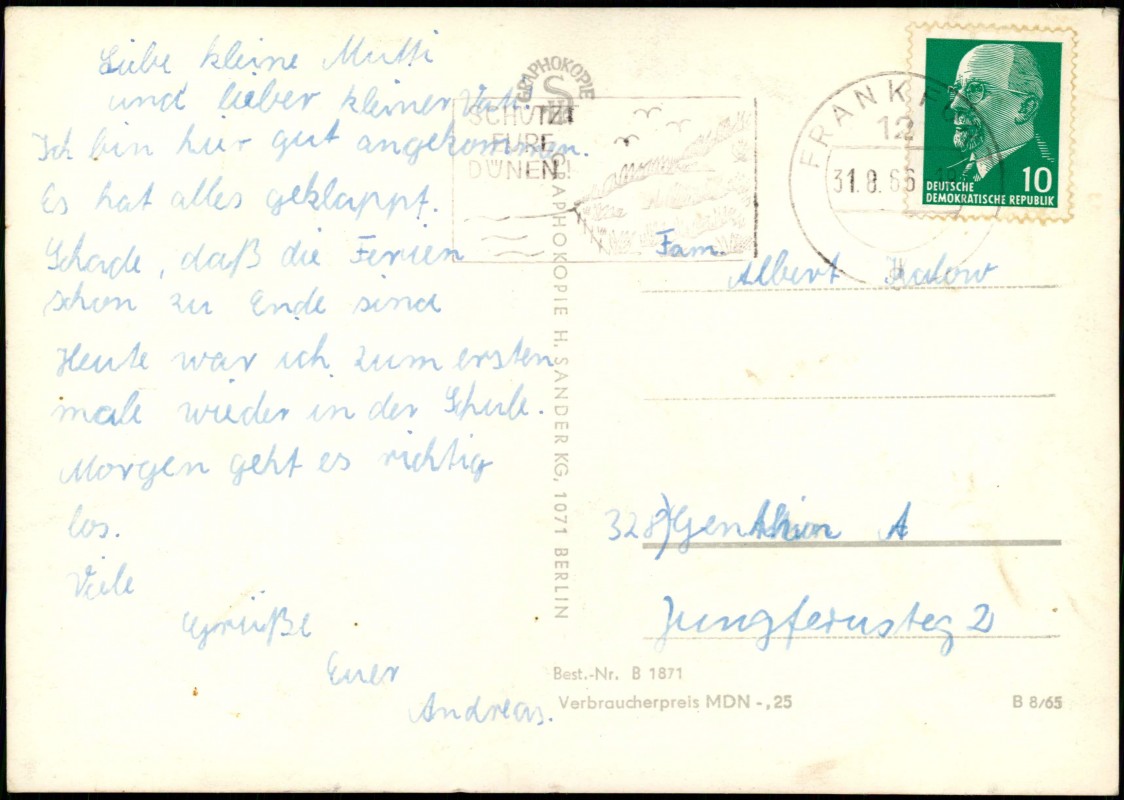 Liebe kleine Mutti
und lieber kleiner Vati.
Ich bin hier gut angekommen.
Es hat alles geklappt.
Schade, daß die Ferien
schon zu Ende sind
Heute war ich zum ersten
male wieder in der Schule.
Morgen geht es richtig
los.
Viele
Grüße
Euer
Andreas.
GRAPHOKOPIE
GRAPHOKOPIE H. SANDER KG, 1071 BERLIN
SCHÜTZT
EURE
DÜNEN!
FRANKF
12
31.8.66
DEUTSCHE
DEMOKRATISCHE REPUBLIK
10
Fam.
Albert
328) Genthin A
Jungfernsteg 2
Best.-Nr. B 1871
Verbraucherpreis MDN -,25
B 8/65